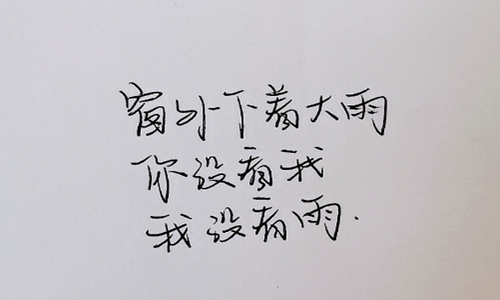 窗外下着大雨
你没看我
我没看雨.